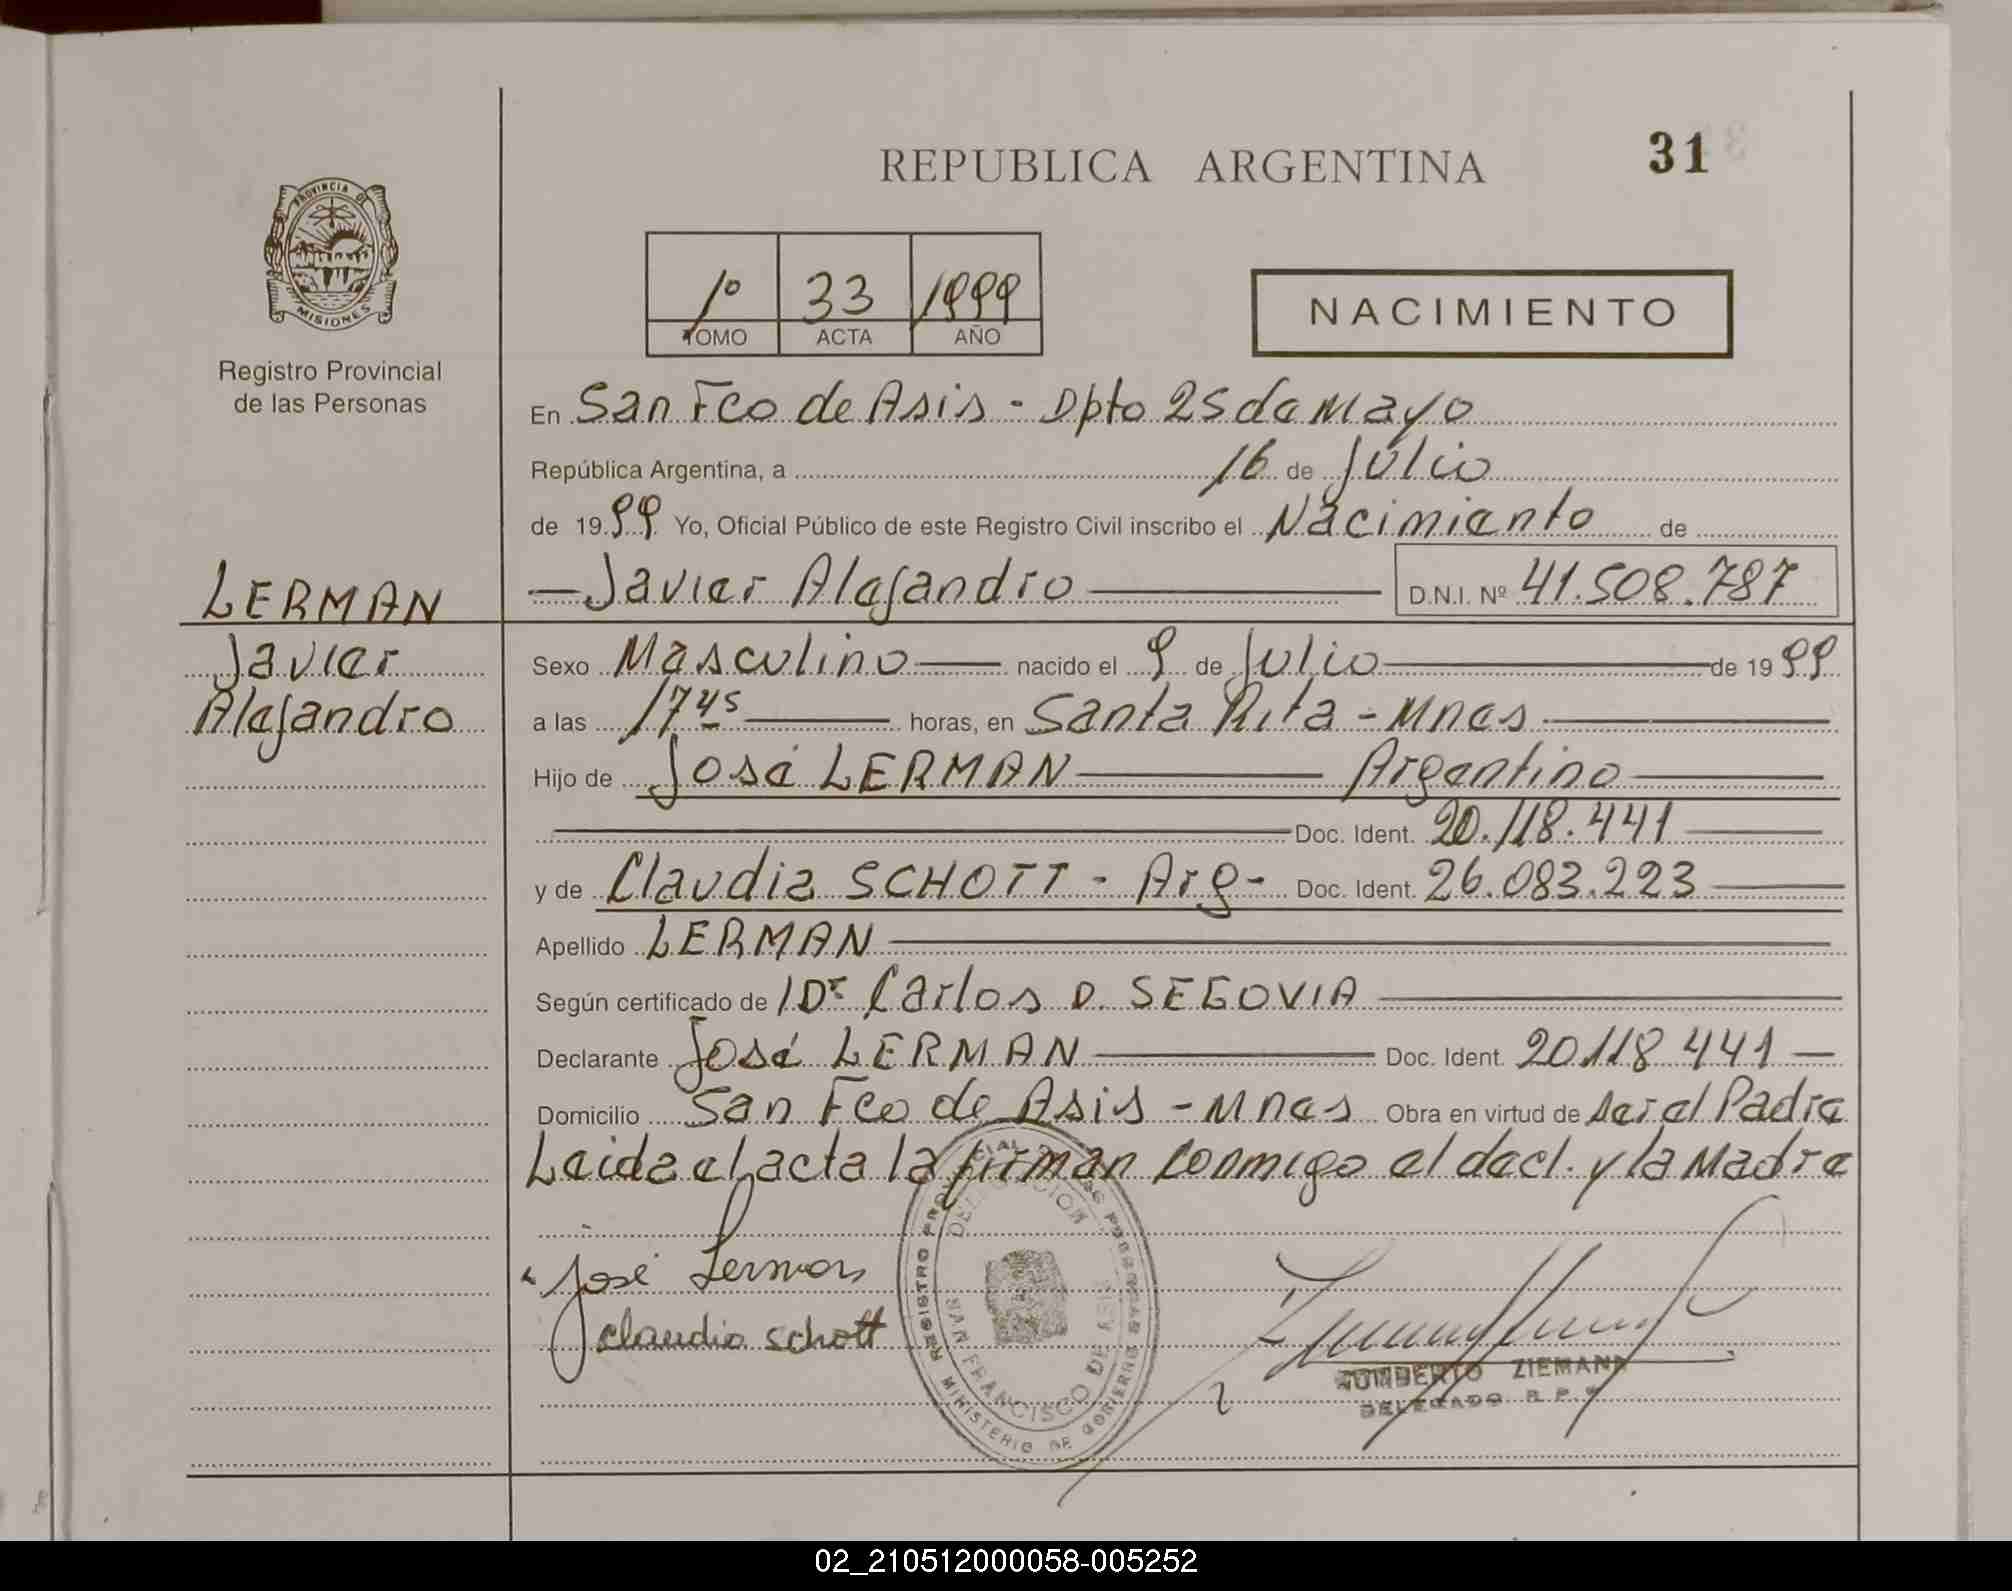 REPUBLICA ARGENTINA
31
PROVINCIA DE
MISIONES
Registro Provincial
de las Personas
1º 33 1999
TOMO ACTA AÑO
NACIMIENTO
En San Fco de Asis - Dpto 25 de Mayo
República Argentina, a 16 de Julio
de 1999 Yo, Oficial Público de este Registro Civil inscribo el Nacimiento de
LERMAN
Javier
Alejandro
Javier Alejandro D.N.I. Nº 41.508.787
Sexo Masculino nacido el 9 de Julio de 1999
a las 17 45 horas, en Santa Rita - Mnes
Hijo de José LERMAN Argentino
Doc. Ident. 20.118.441
y de Claudia SCHOTT - Arg - Doc. Ident. 26.083.223
Apellido LERMAN
Según certificado de Dr Carlos D. SEGOVIA
Declarante José LERMAN Doc. Ident. 20118441
Domicilio San Fco de Asis - Mnes Obra en virtud de ser el Padre
Leida el acta la firman conmigo el decl. y la Madre
José Lerman
Claudia Schott
REGISTRO PROVINCIAL DE LAS PERSONAS
MINISTERIO DE GOBIERNO
DELEGACION
SAN FRANCISCO DE ASIS
HUMBERTO ZIEMANN
DELEGADO R.P.P.
02_210512000058-005252